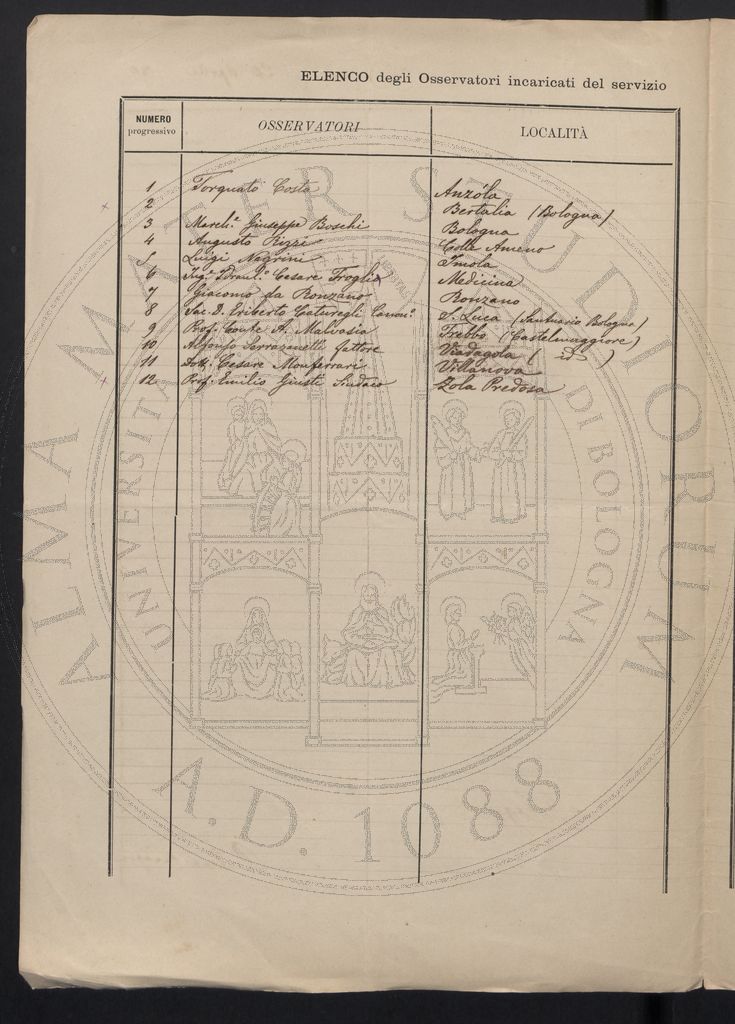 ELENCO degli Osservatori incaricati del servizio
NUMERO progressivo OSSERVATORI LOCALITÀ
1 Torquato Costa Anzóla
2 Bertalia (Bologna)
3 March.e Giuseppe Boschi Bologna
4 Augusto Rizzi Colle Ameno
5 Luigi Nazrini Imola
6 Ing.e Idraul.o Cesare Troglia Medicina
7 Giacomo da Ronzano Ronzano
8 Sac. D. Eriberto Caturegli Canon.o S. Luca (Santuario Bologna)
9 Prof. Conte A. Malvasia Trebbo (Castelmaggiore)
10 Alfonso Serrazanetti fattore Viadagola ( id )
11 Dott. Cesare Monferrari Villanova
12 Prof. Emilio Giusti Sindaco Zola Predosa
ALMA MATER STUDIORUM
UNIVERSITÀ DI BOLOGNA
A.D. 1088